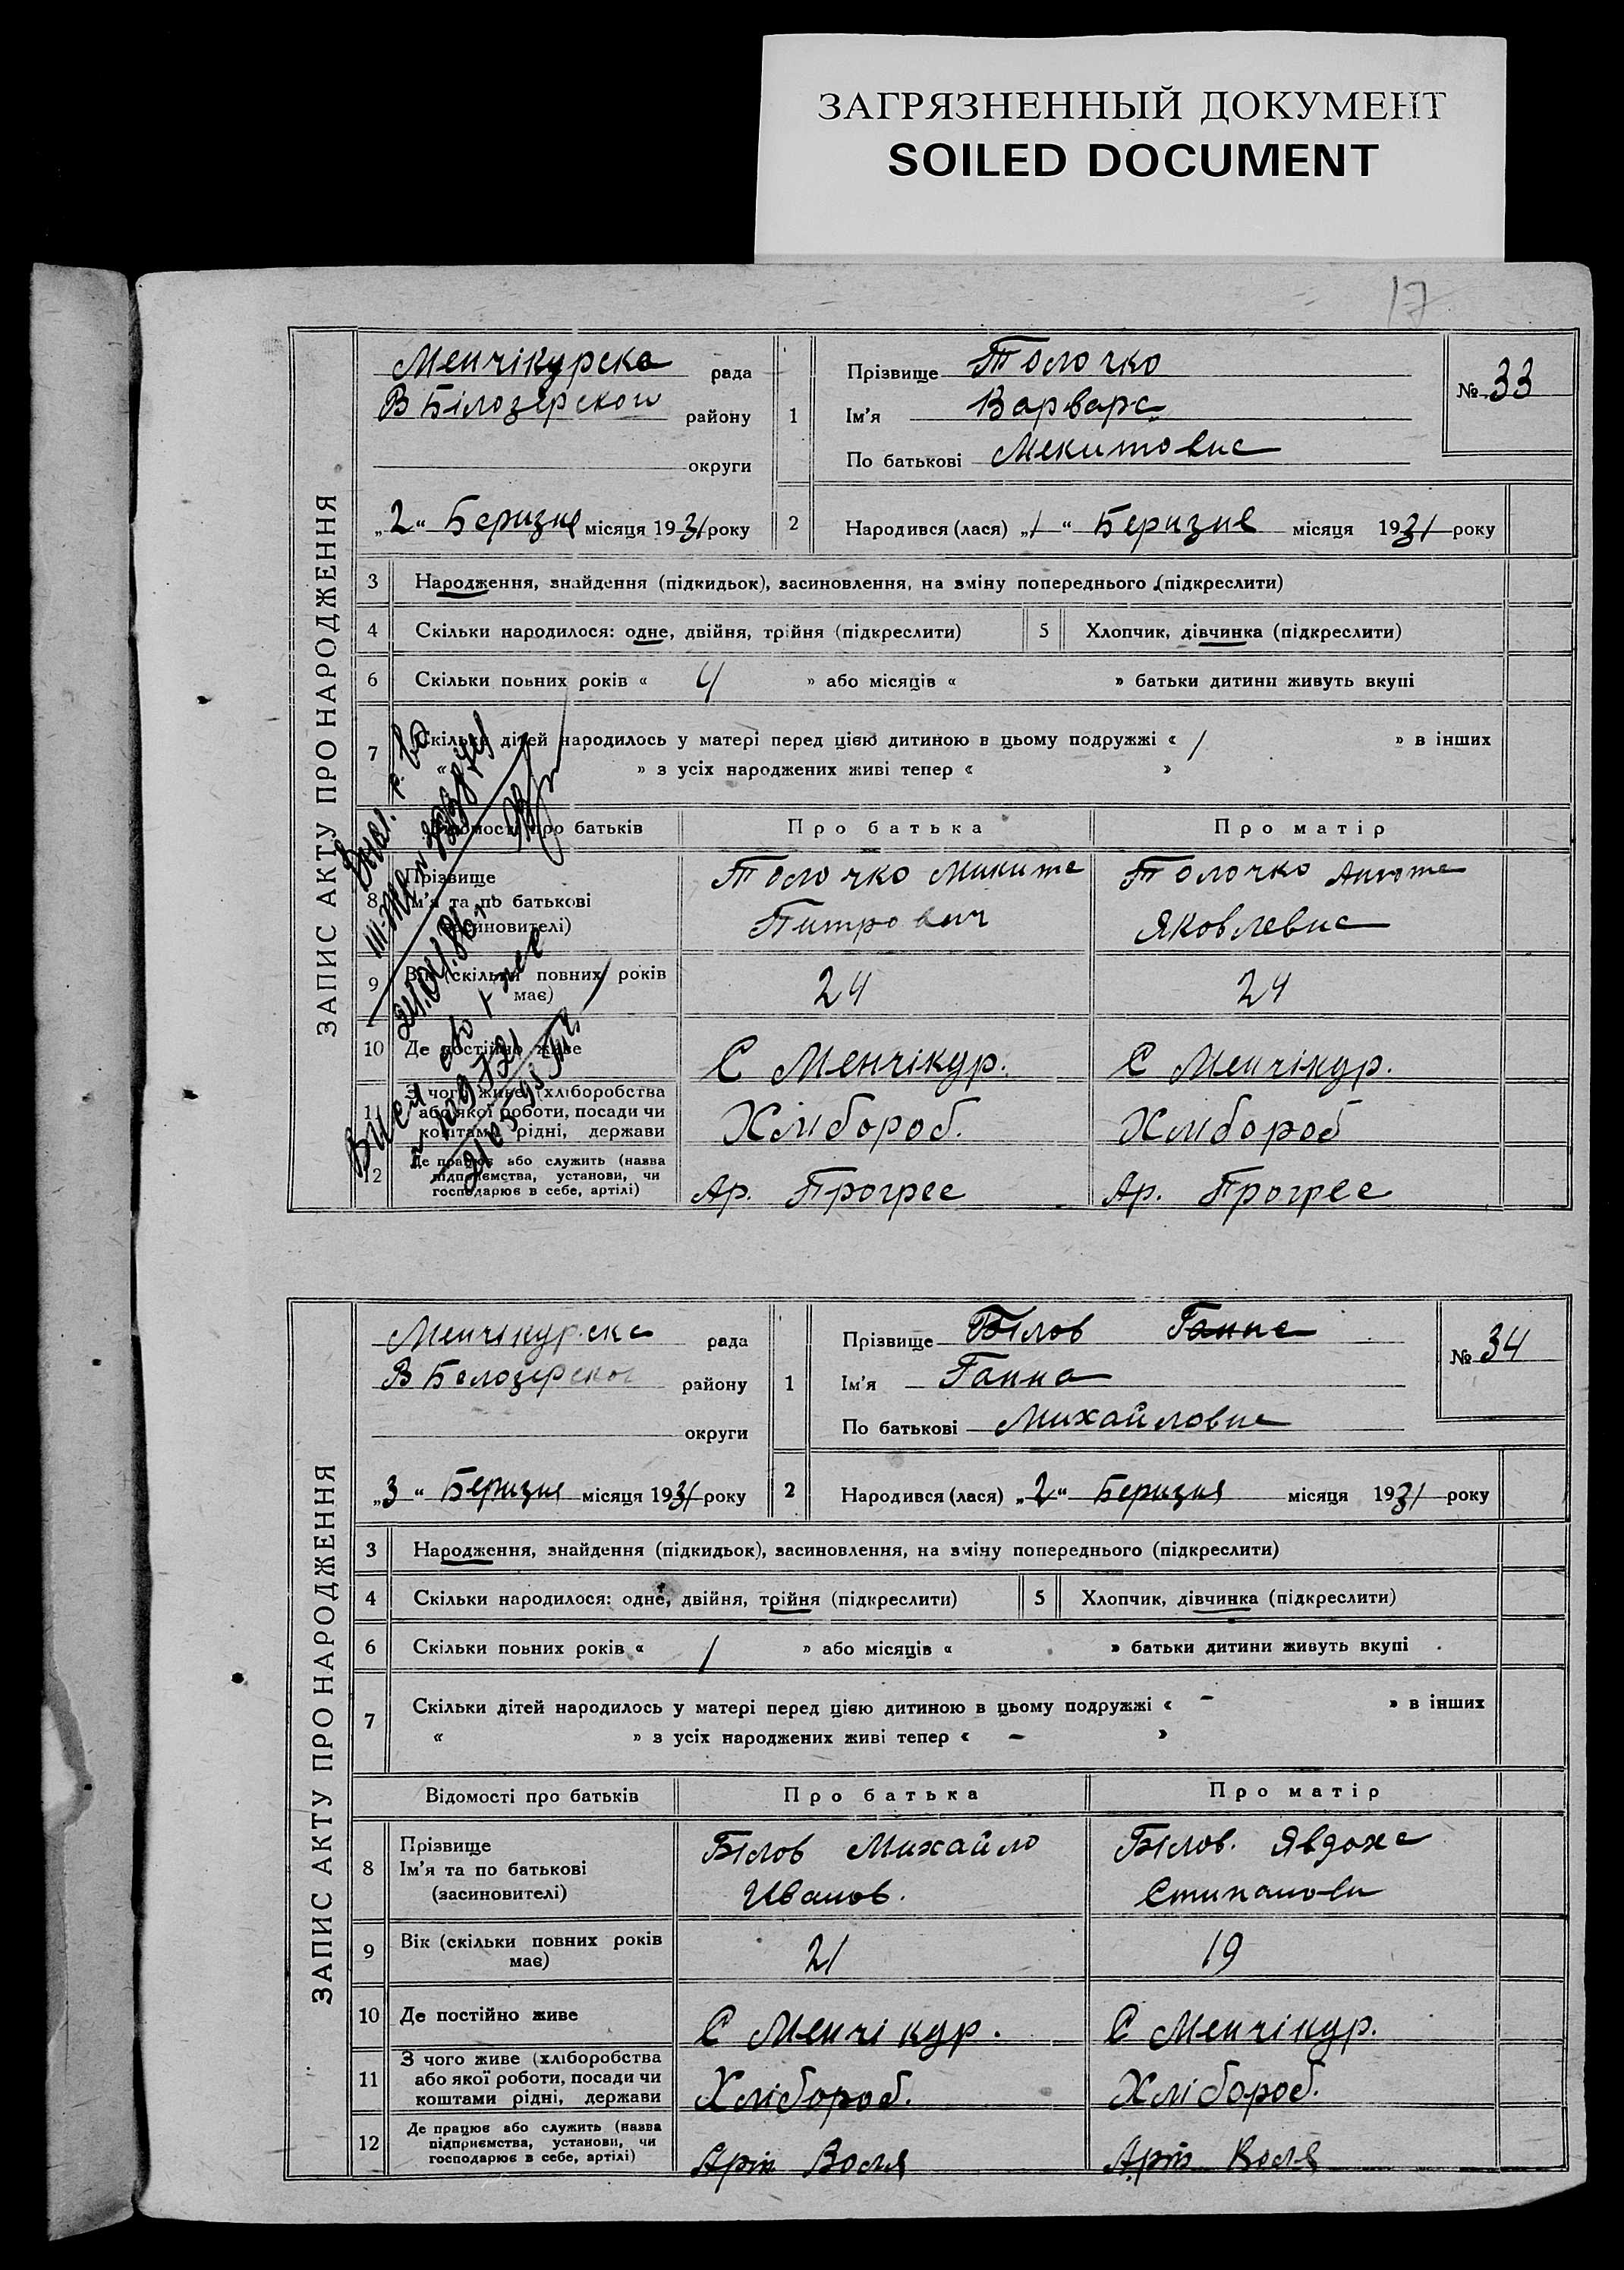 ЗАГРЯЗНЕННЫЙ ДОКУМЕНТ
SOILED DOCUMENT
17
ЗАПИС АКТУ ПРО НАРОДЖЕННЯ
Менчікурска рада
В Білозерског району
округи
„2“ Беризня місяця 1931 року
1
Прізвище Толочко
Ім'я Варвара
По батькові Мекитовна
№ 33
2 Народився (лася) „1“ Беризня місяця 1931 року
3 Народження, знайдення (підкидьок), засиновлення, на зміну попереднього (підкреслити)
4 Скільки народилося: одне, двійня, трійня (підкреслити) 5 Хлопчик, дівчинка (підкреслити)
6 Скільки повних років « 4 » або місяців « » батьки дитини живуть вкупі
7 Скільки дітей народилось у матері перед цією дитиною в цьому подружжі « 1 » в інших
« » з усіх народжених живі тепер « »
Відомості про батьків Про батька Про матір
8 Прізвище
Ім'я та по батькові
(засиновителі)
Толочко Микита
Питрович
Толочко Анюта
Яковлевна
9 Вік (скільки повних років
має)
24 24
10 Де постійно живе С Менчікур. С Менчікур.
11 З чого живе (хліборобства
або якої роботи, посади чи
коштами рідні, держави
Хлібороб. Хлібороб
12 Де працює або служить (назва
підприємства, установи, чи
господарює в себе, артілі)
Ар. Прогрес Ар. Прогрес
24.04.86г
ЗАПИС АКТУ ПРО НАРОДЖЕННЯ
Менчікурска рада
В Белозерског району
округи
„3“ Беризня місяця 1931 року
1
Прізвище Білов Ганна
Ім'я Ганна
По батькові Михайловна
№ 34
2 Народився (лася) „2“ Беризня місяця 1931 року
3 Народження, знайдення (підкидьок), засиновлення, на зміну попереднього (підкреслити)
4 Скільки народилося: одне, двійня, трійня (підкреслити) 5 Хлопчик, дівчинка (підкреслити)
6 Скільки повних років « 1 » або місяців « » батьки дитини живуть вкупі
7 Скільки дітей народилось у матері перед цією дитиною в цьому подружжі « - » в інших
« » з усіх народжених живі тепер « - »
Відомості про батьків Про батька Про матір
8 Прізвище
Ім'я та по батькові
(засиновителі)
Білов Михайло
Иванов.
Білов. Явдоха
Стипанови
9 Вік (скільки повних років
має)
21 19
10 Де постійно живе С Менчікур. С Менчікур.
11 З чого живе (хліборобства
або якої роботи, посади чи
коштами рідні, держави
Хлібороб. Хлібороб.
12 Де працює або служить (назва
підприємства, установи, чи
господарює в себе, артілі)
Арт Воля Арт Воля